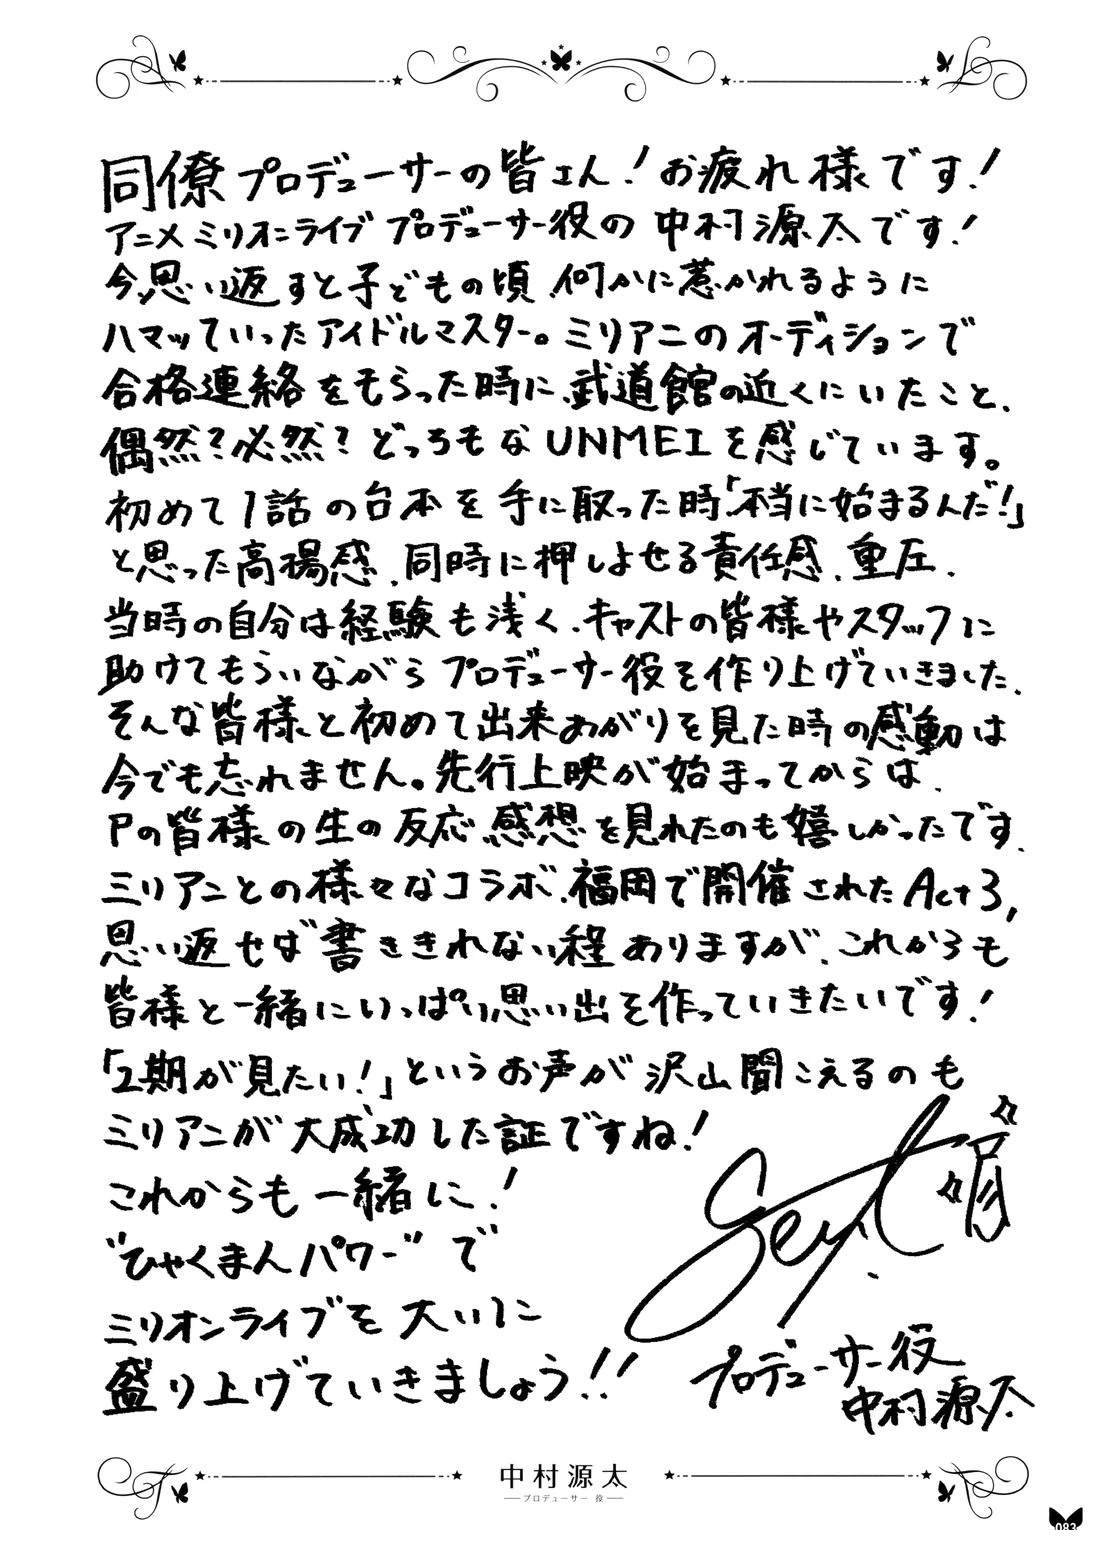 同僚プロデューサーの皆さん！お疲れ様です！
アニメミリオンライブ プロデューサー役の 中村源太です！
今思い返すと子どもの頃、何かに惹かれるように
ハマッていったアイドルマスター。ミリアニのオーディションで
合格連絡をもらった時に、武道館の近くにいたこと、
偶然？必然？どっちもなUNMEIを感じています。
初めて1話の台本を手に取った時「本当に始まるんだ！」
と思った高揚感、同時に押しよせる責任感、重圧、
当時の自分は経験も浅く、キャストの皆様やスタッフに
助けてもらいながらプロデューサー役を作り上げていきました、
そんな皆様と初めて出来あがりを見た時の感動は
今でも忘れません。先行上映が始まってからは、
Pの皆様の生の反応、感想を見れたのも嬉しかったです、
ミリアニとの様々なコラボ、福岡で開催されたAct3,
思い返せば書ききれない程ありますが、これからも
皆様と一緒にいっぱい思い出を作っていきたいです！
「2期が見たい！」というお声が沢山聞こえるのも
ミリアニが大成功した証ですね！
これからも一緒に！
“ひゃくまんパワー”で
ミリオンライブを大いに
盛り上げていきましょう！！
プロデューサー役
中村源太
中村源太
プロデューサー 役
083